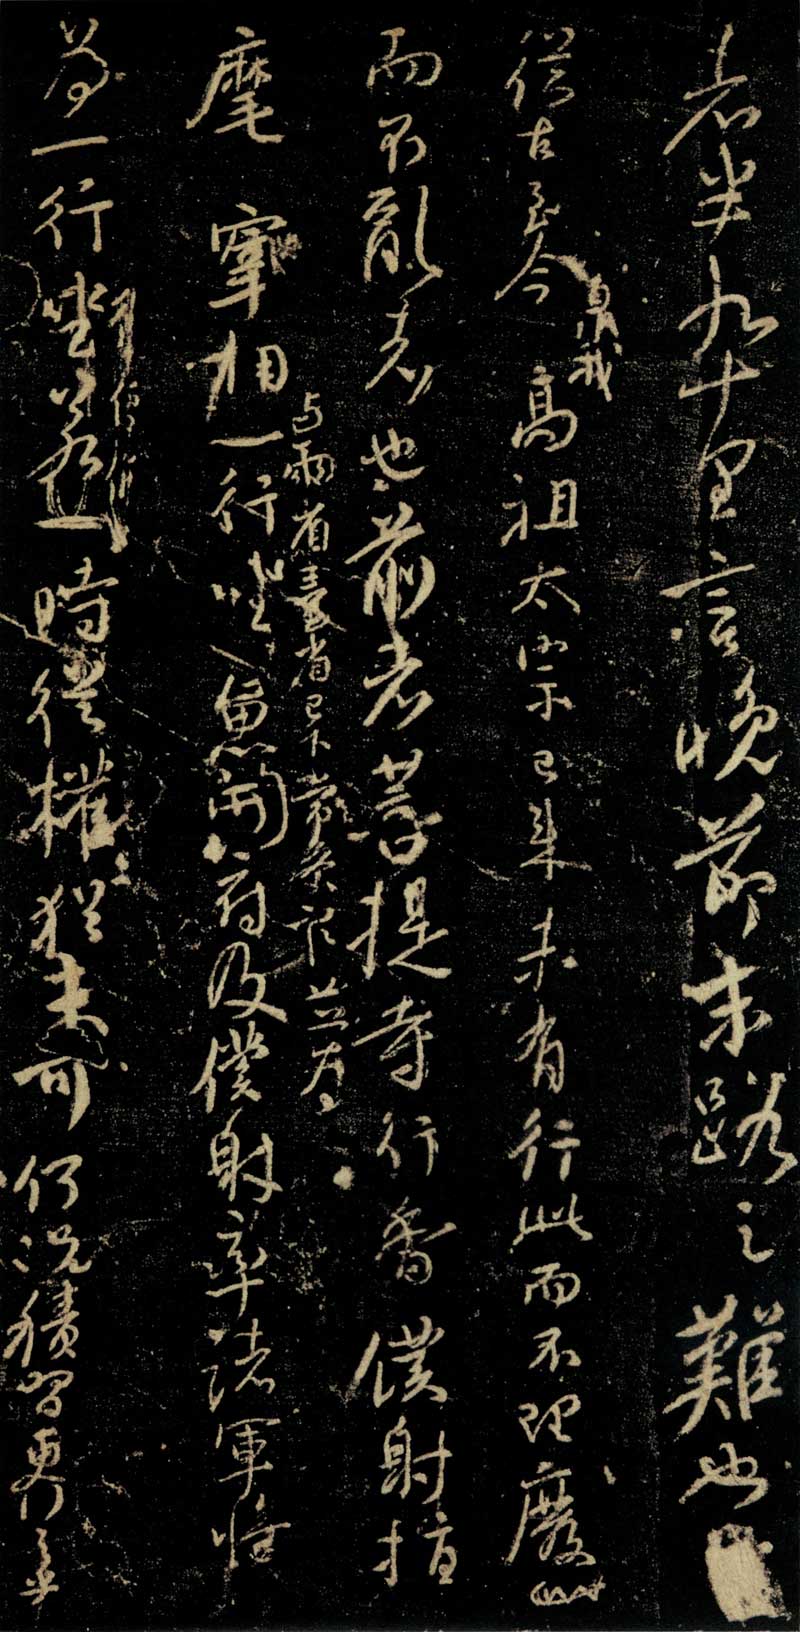 者半九十里言晚節末路之難也
從古至今
臮我
高祖太宗已來未有行此而不理廢
而不亂者也前者菩提寺行香僕射指
麾宰相一行坐魚開府及僕射率諸軍將
与兩省臺省已下常參官並為
為一行坐若一時從權猶未可何況積習更行之乎